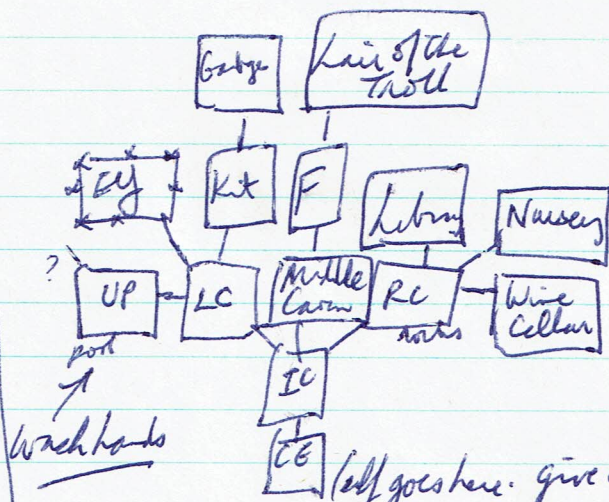 Garbge
Lair of the
Troll
Kit
F
Library
Nursery
?
UP
LC
Middle
Cavern
RC
Wine
Cellar
IC
wash hands
CE
(elf goes here. give